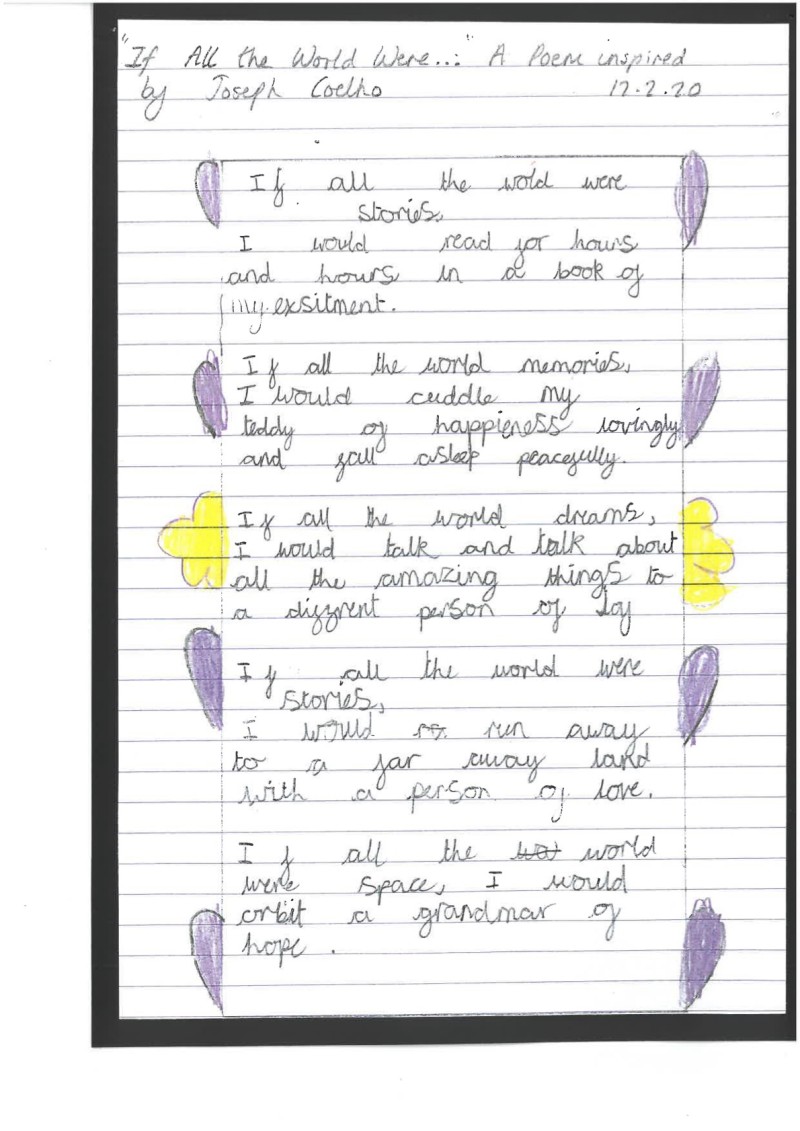 "If All the World Were...:" A Poem inspired
by Joseph Coelho 17.2.20
If all the wold were
stories,
I would read for hours
and hours in a book of
my exsitment.
If all the world memories,
I would cuddle my
teddy of happieness lovingly
and fall asleep peacefully.
If all the world dreams,
I would talk and talk about
all the amazing things to
a diffrent person of Joy
If all the world were
stories,
I would run away
to a far away land
with a person of love.
If all the world
were space, I would
orbit a grandmar of
hope.